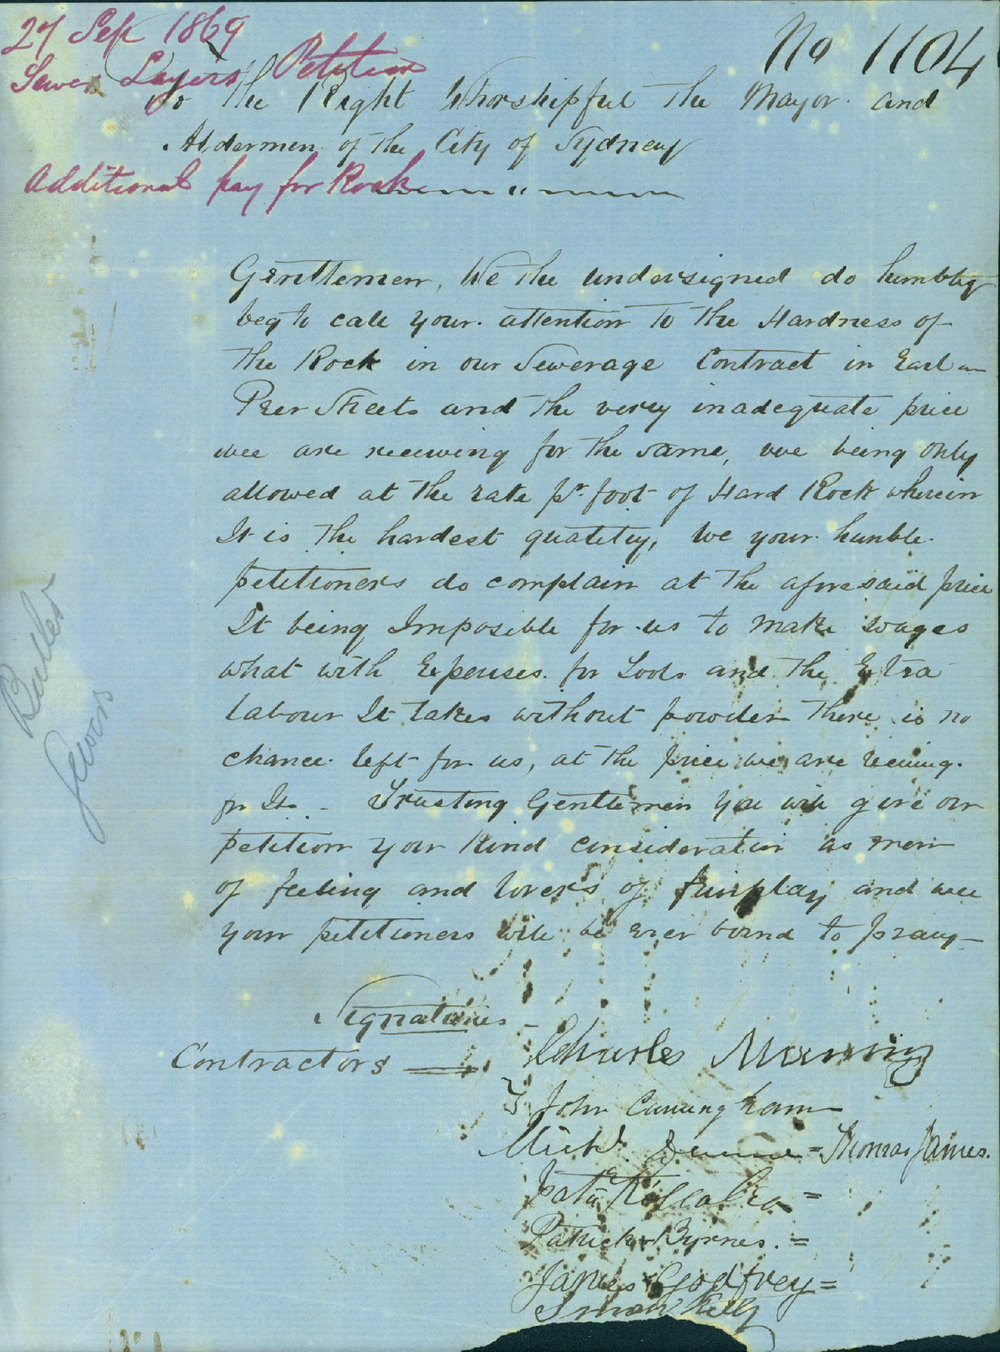 27 Sep 1869
No 1104
Sewer Layers Petition
To the Right Worshipful the Mayor and
Aldermen of the City of Sydney
Additional pay for Rock
Gentlemen, We the undersigned do humbly
beg to call your attention to the Hardness of
the Rock in our Sewerage Contract in
Streets and the very inadequate price
wee are receiving for the same, we being only
allowed at the rate pr. foot of Hard Rock wherein
It is the hardest quality, We your humble
petitioners do complain at the aforesaid price
It being Imposible for us to make wages
what with Expenses for Tools and the Extra
labour It takes without powder there is no
chance left for us, at the price we are
for It. Trusting Gentlemen you will give our
petition your Kind consideration as men
of feeling and lovers of fairplay and wee
your petitioners will be ever bound to pray
Butler
Sewers
Signatures
Contractors
Charles
John
Michl. = Thomas James.
=
Patrick Byrnes. =
James Godfrey =
Kelly